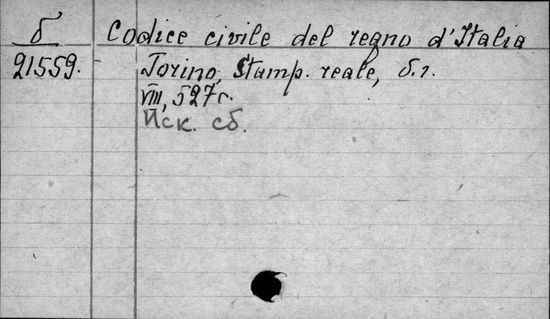 б
21559.
Codice civile del regno d'Italia
Torino, Stamp. reale, б.г.
VIII, 527 с.
Иск. сб.